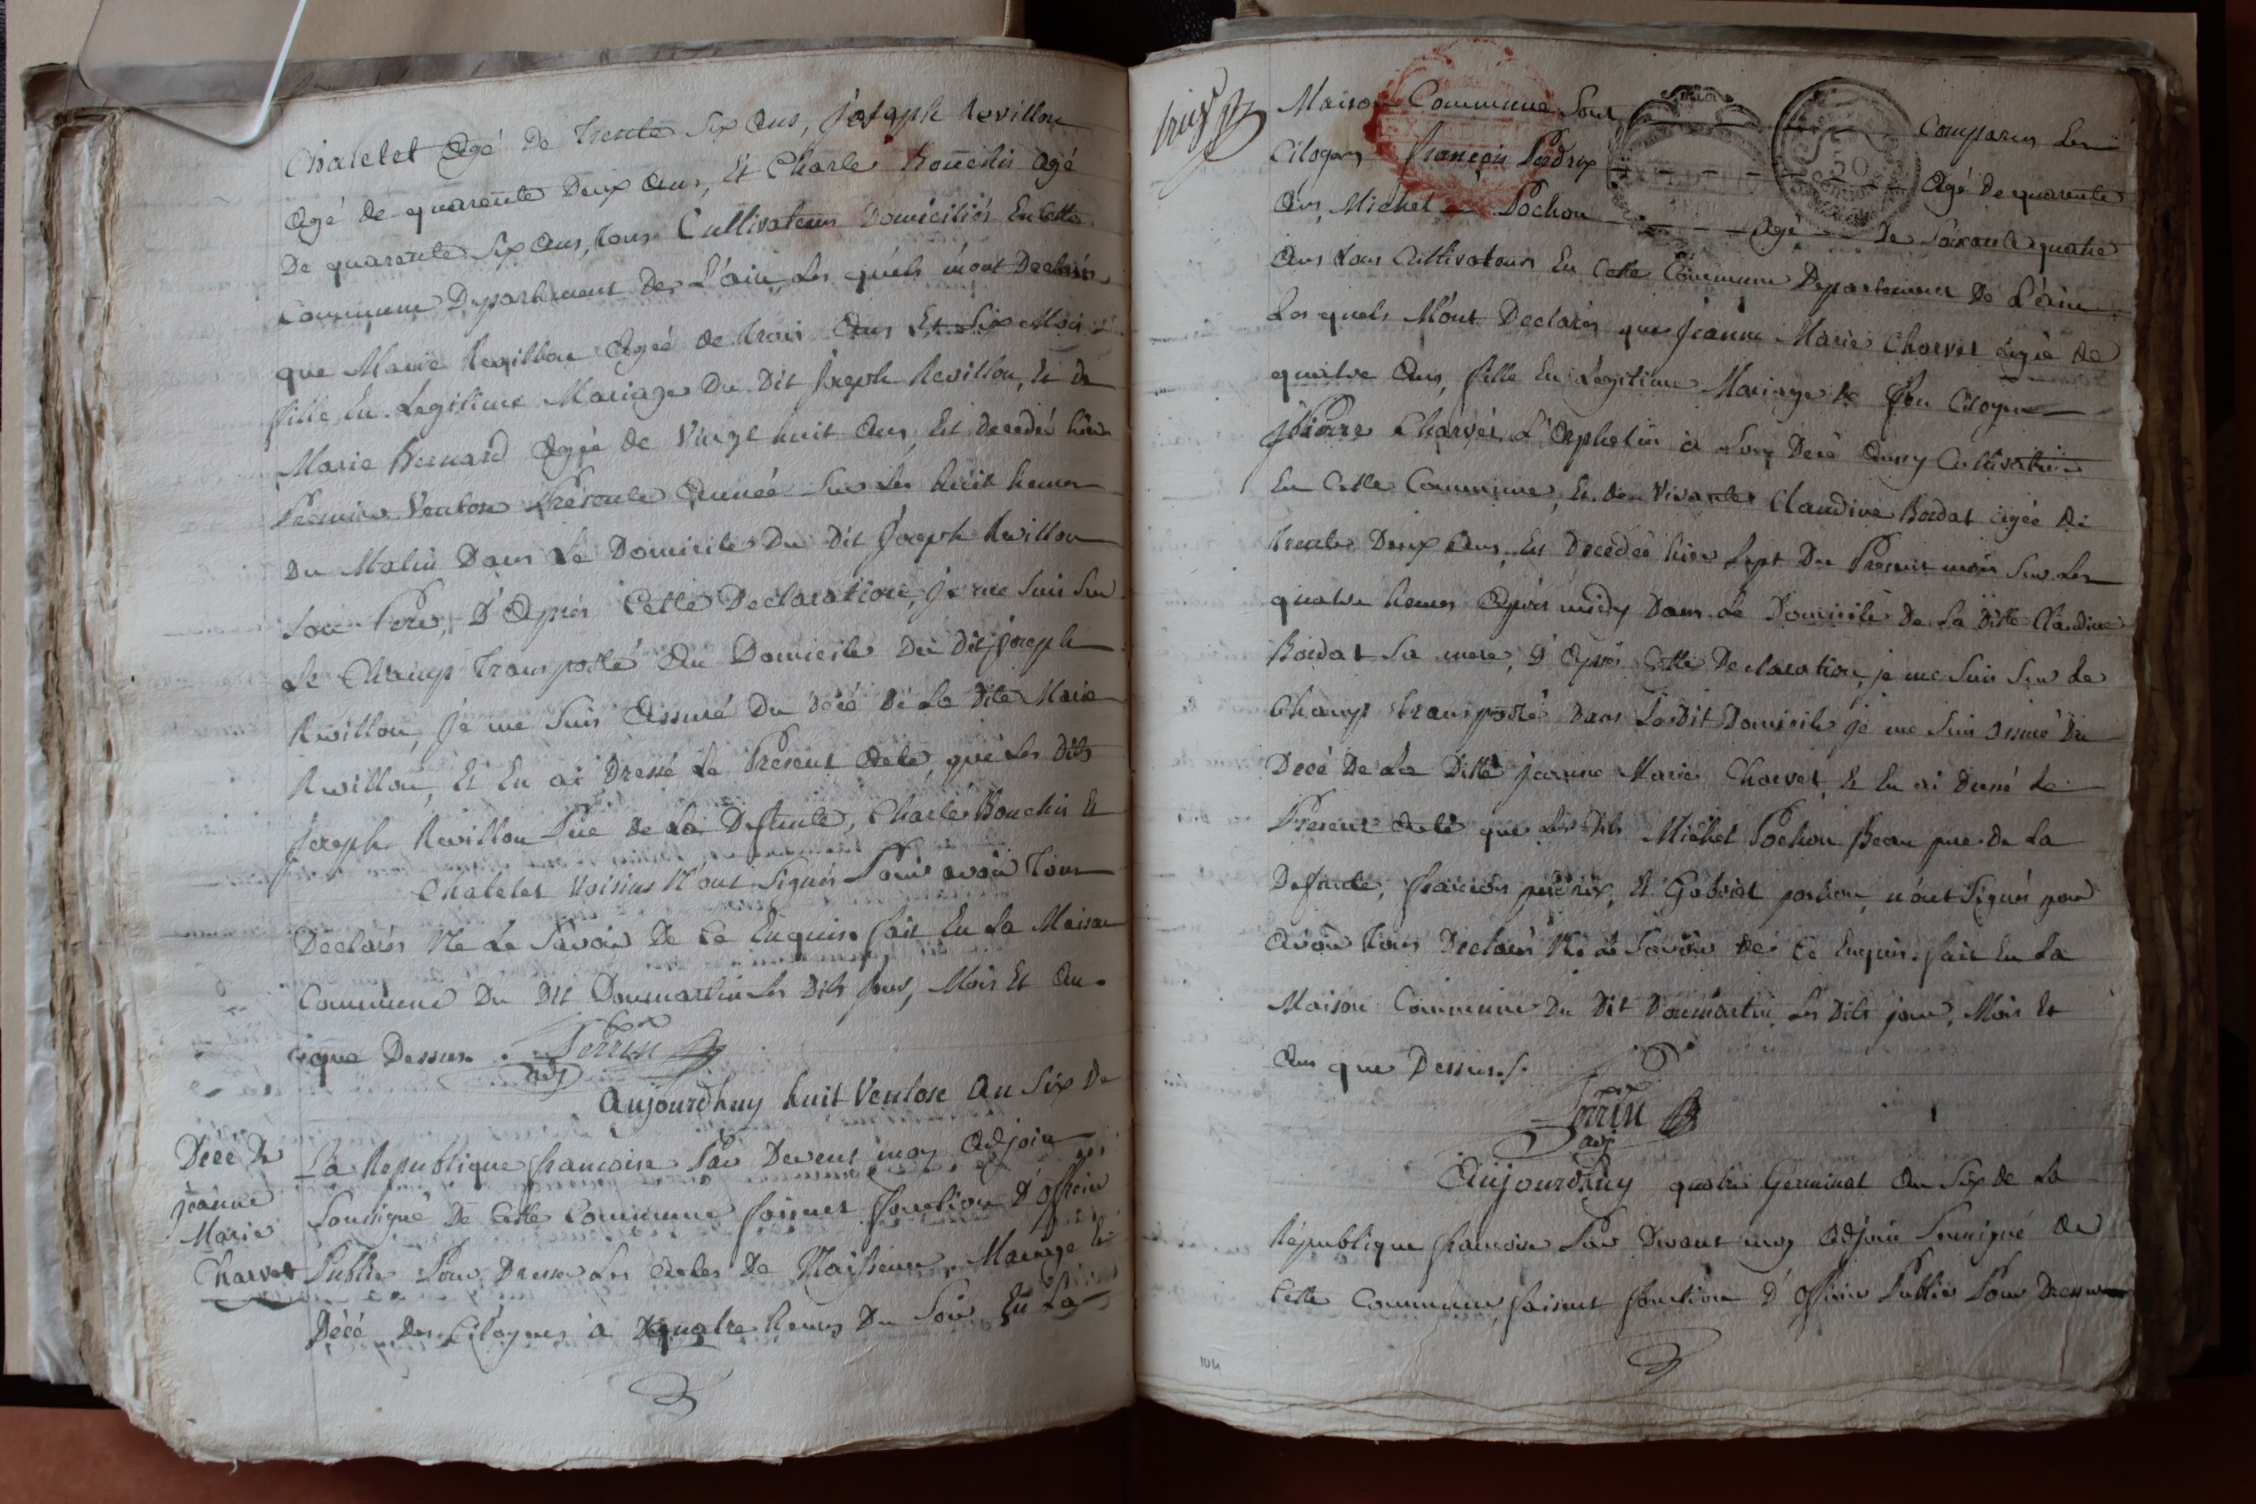 Chatelet Agé De Trente Six Ans, Joseph Revillon
Agé de quarente Deux Ans, Et Charle Bouchis Agé
De quarente Six Ans, tous Cultivateurs Domiciliés En Cette
Commune Departement de L'ain, Les quels m'ont Declarés
que Marie Revillon Agée de trois Ans Et Six Mois
fille En Legitime Mariage Du Dit Joseph Revillon, Et de
Marie Bernard Agée de Vingt huit Ans, Est decedée hier
Premier Ventose Presente Année Sur Les huit heures
Du Matin Dans Le Domicile Du Dit Joseph Revillon
Son Pere, D'Aprés Cette Declaration, Je me Suis Sur
Le Champ Transporté Au Domicile Du Dit Joseph
Revillon, Je me Suis Assuré Du décé de La Dite Marie
Revillon, Et En ai Dressé Le Présent Acte, que Les Dits
Joseph Revillon Pere de La Defunte, Charle Bouchis Et
Chatelet Voisins N'ont Signés Pour avoir Tous
Declarés Ne Le Savoir De Ce Enquis. fait En La Maison
Commune Du Dit Doumartin Les Dits Jour, Mois Et An
que Dessus. Perrin
adj
Aujourdhuy huit Ventose An Six De
Décé De
jeanne
Marie
Charvet
La Republique francoise Par Devent moy Adjoin
Sousigné De Cette Commune faisant fonction D'Officier
Public Pour Dresser Les Actes De Naissance, Mariage et
Décé Des Citoyens à quatre heures Du Soir En La
Maison Commune Sont Comparus Les
Citoyens françois Perdrix Agé de quarente
Ans, Michel Pochon Agé De Soixante quatre
Ans tous Cultivateurs En Cette Commune Departement De L'ain
Les quels M'ont Declarés que Jeanne Marie Charvet Agée de
quatre Ans, fille En Legitime Mariage de feu Citoyen
Pierre Charvet L'Orphelin à Son Decé Aussy Cultivateur
En Cette Commune, Et de Vivante Claudine Bordat agée de
trente Deux Ans, Est Decedée hier Sept Du Present mois Sur Les
quatre heures Après midy Dans Le Domicile De La Ditte Claudine
Bordat Sa mere, D'Aprés Cette Declaration, je me Suis Sur Le
Champ transporté Dans Le Dit Domicile je me Suis Assuré Du
Decé De La Ditte jeanne Marie Charvet, Et En ai Dressé Le
Présent Acte que Les Dits Michel Pochon Beau pere De La
Defunte, francois perdrix, Et Gabriel pochon, n'ont Signés pour
Avoir tous Declarés Ne Le Savoir de Ce Enquis. fait En La
Maison Commune Du Dit Doumartin Les Dits jour, Mois Et
Ans que Dessus.
Perrin
adj
Aujourdhuy quatre Germinal An Six De La
République francoise Par Devant moy Adjoin Sousigné De
Cette Commune faisant fonction D'Officier Public Pour Dresser
50
104